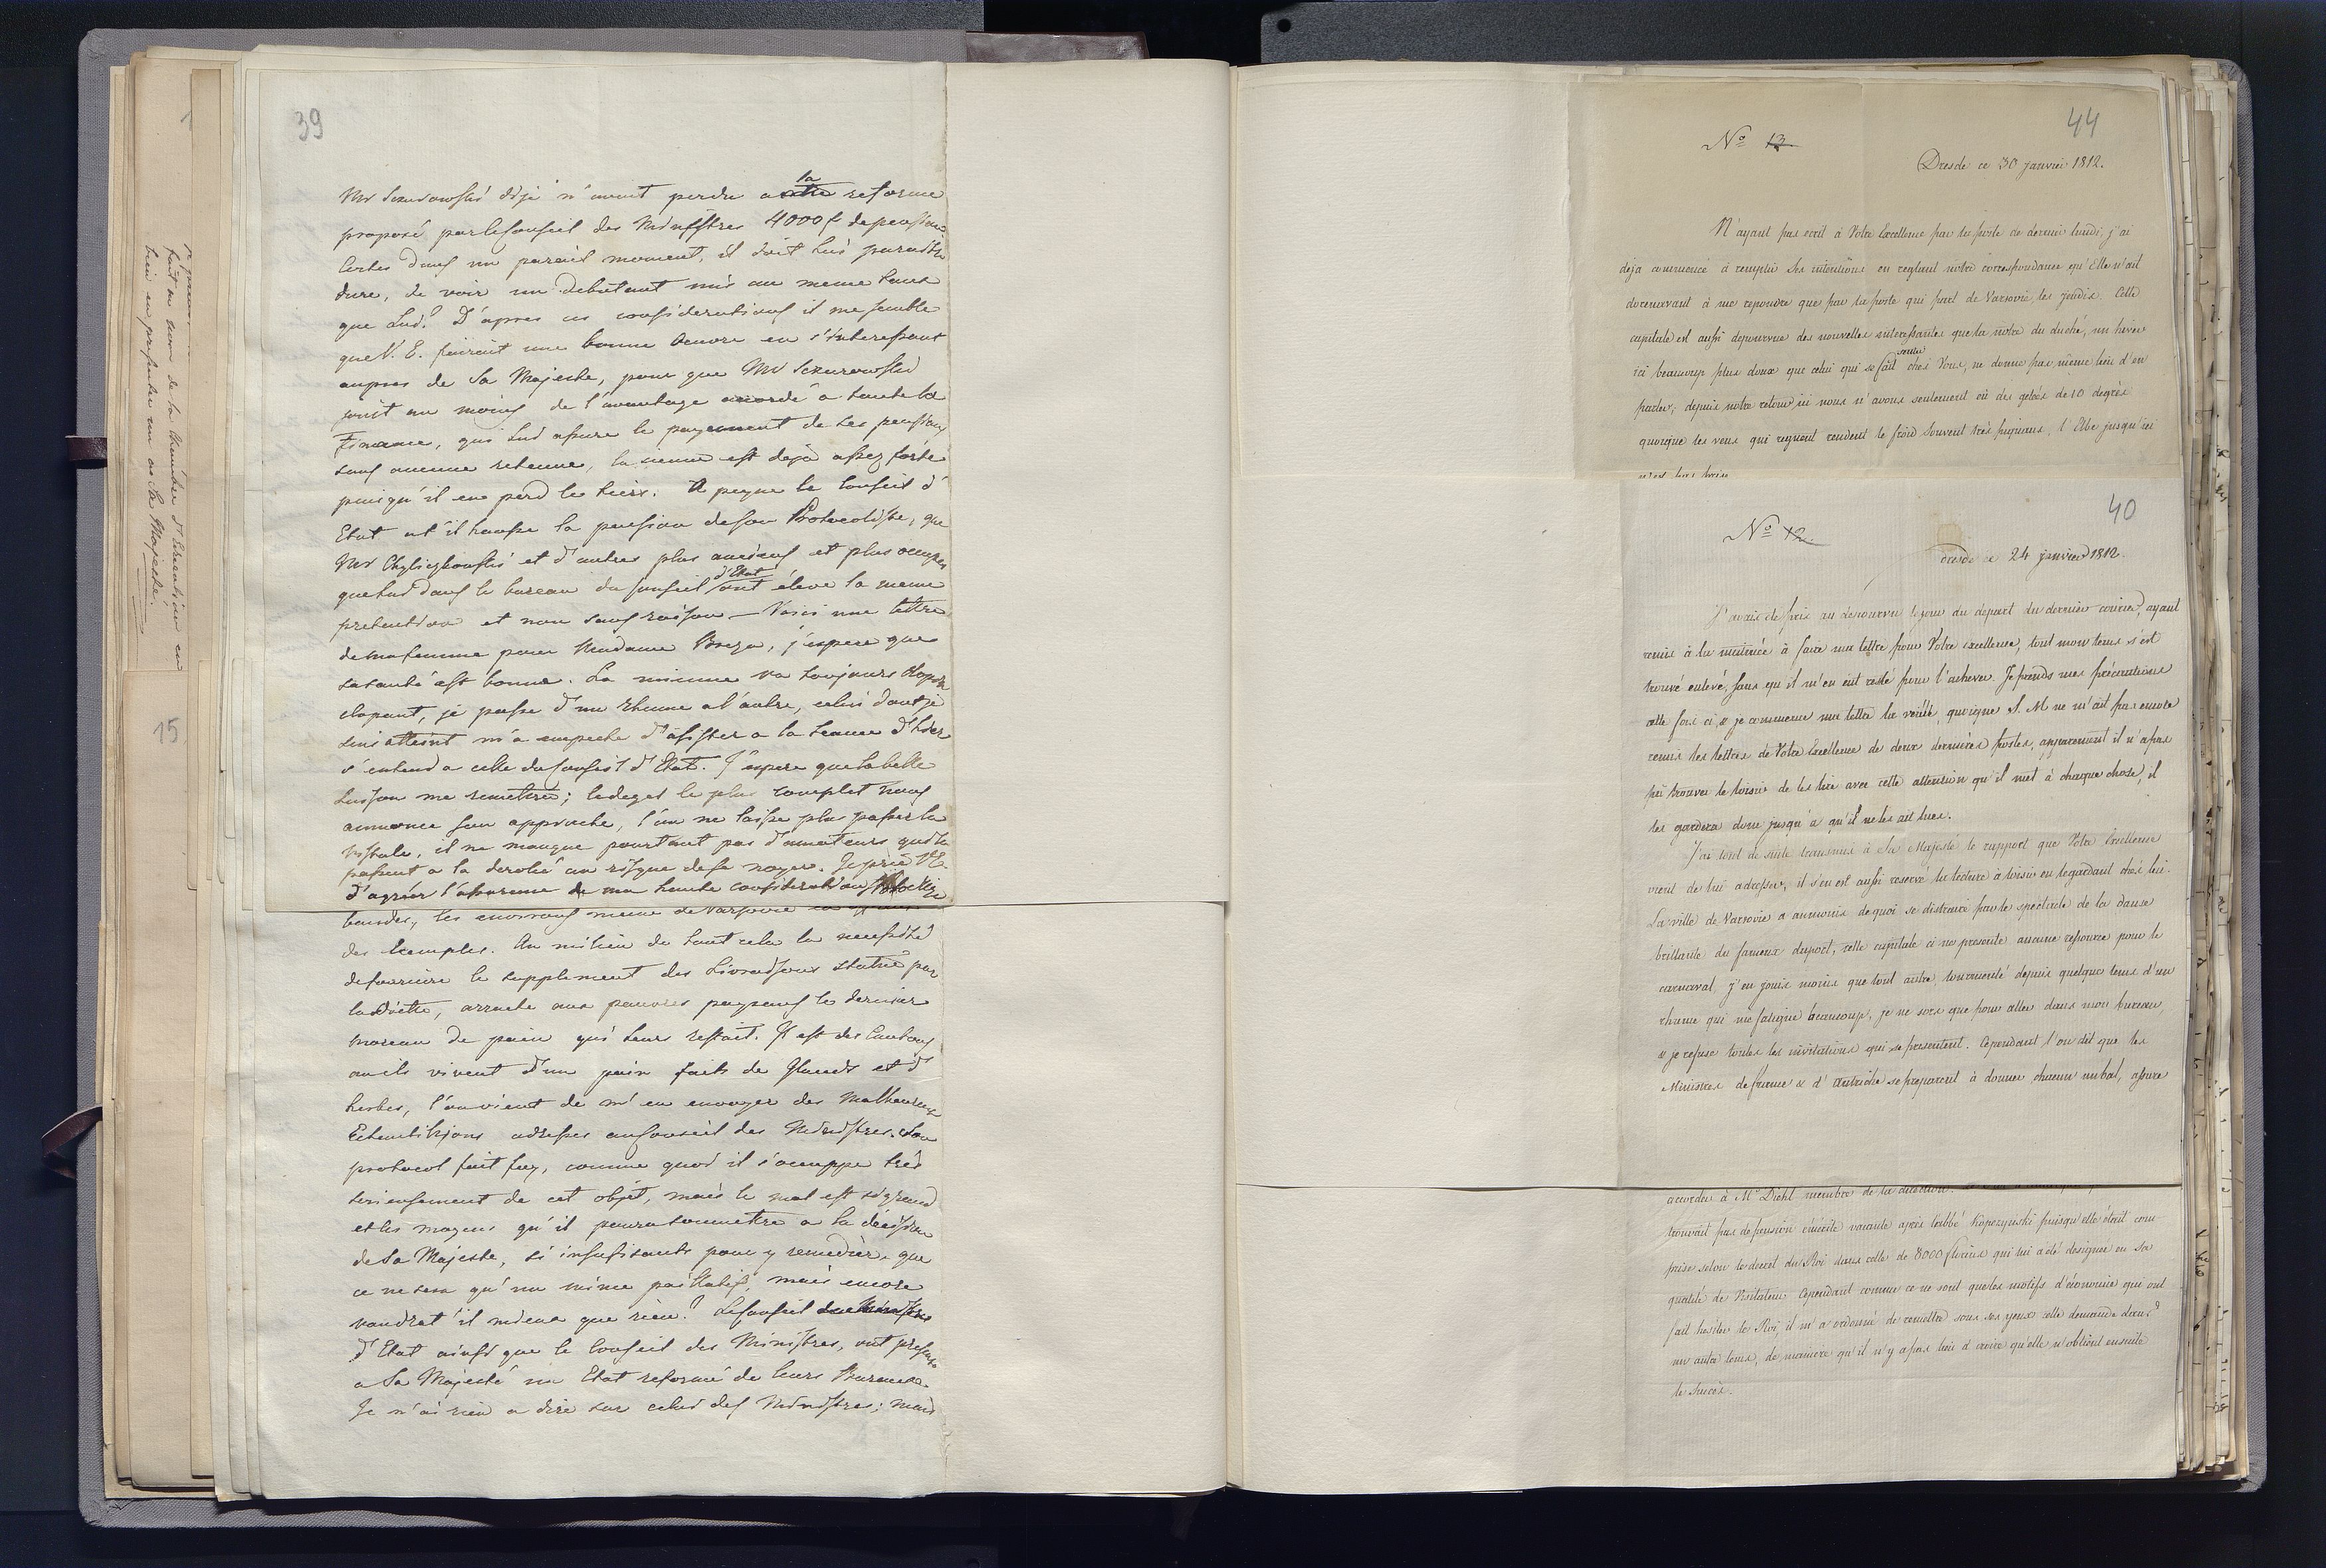 39
Mr Szczurowski déja n'avient perdu a la reforme
proposé par le Conseil des Ministres 4000 f de pension.
Certes dans un pareil moment, il doit lui paraitre
dure, de voir un debutant mis au meme taux
que Lui? D'apres ces considerations il me semble
que V. E. feiroit une bonne Oeuvre en s'interessant
aupres de Sa Majeste, pour que Mr Szczurowski
jouit au moins de l'avantage acordé a toute la
Finance, qui lui assure le payement de ses pensions
sans aucune retenue, la sienne est déjà assez forte
puisqu'il en perd le tiers. A peyne le Conseil d'
Etat at'il haussé la pension de son Protocoliste, que
Mr et d'autres plus anciens et plus occupés
que lui dans le bureau du Conseil d'Etat ont élevé la meme
pretention et non sans raison — Voici une lettre
de ma femme pour Madame Breza, j'espere que
sa santé est bonne. La mienne va toujours clopin
clopant, je passe d'un Rhume a l'autre, celui dont je
suis atteint m'a empeché d'assister a la seance d'hier
s'entend a celle du Conseil d'Etat. J'espere que la belle
saison me remettra; le degel le plus complet nous
annonce son approche, l'on ne laisse plus passer la
Vistule, il ne manque pourtant pas d'amateurs qui la
passent a la derobée au risque de se noyer. Je prie V.E.
d'agréer l'assurence de ma haute consideration
bandes, les environs meme de Varsovie
des Exemples. Au milieu de tout cela la necessité
de fournire le supplement des Livraisons statué par
la Diette, arrache aux pauvres paysans le dernier
morceau de pain qui leur restait. Il est des Cantons
ou ils vivent d'un pain faits de Glands et d'
herbes, l'on vient de m'en envoyer des Malheureux
Echantillons adressés au Conseil des Ministres. Son
protocol fait foy, comme quoi il s'occuppe trés
serieusement de cet objet, mais le mal est si grand
et les moyens qu'il pourra soumettre a la décision
de Sa Majeste, si insufisants pour y remedier, que
ce ne sera qu'un mince palliatif, mais encore
vaudrat'il mieux que rien? Le Conseil des Ministres
d'Etat ainsi que le Conseil des Ministres, ont presenté
a Sa Majesté un Etat reformé de leurs Bureaux.
Je n'ai rien a dire sur celui des Ministres; mais
fait au sein de la Chambre d'Education, en
bien en presenter un au Sa Majesté.
15
44
No 13
Dresde ce 30 janvier 1812.
N'ayant pas ecrit à Votre Excellence par la poste de dernier lundi, j'ai
deja commencé à remplir Ses intentions en reglant notre correspondance qu'Elle n'ait
dorenavant à me repondre que par la poste qui part de Varsovie les jeudis. Cette
capitale est aussi depourvue des nouvelles interessantes que la notre du duché, un hiver
ici beaucoup plus doux que celui qui se fait sentir chés Vous, ne donne pas même lieu d'en
parler; depuis notre retour ici nous n'avons seulement eù des gelées de 10 degrès
quoique les vens qui regnent rendent le froid souvent très piquans, l'Elbe jusqu'ici
40
No 12
Dresde ce 24 janvier 1812.
J'avais été pris au depourvu le jour du depart du dernier courier, ayant
remis à la matinée à faire ma lettre pour Votre excellence, tout mon tems s'est
trouvé enlevé, sans qu'il m'en eut resté pour l'achever. Je prends mes précautions
cette fois ci, & je commence ma lettre la veille, quoique S. M. ne m'ait pas encore
remis les lettres de Votre Excellence de deux dernières postes, apparement il n'a pas
pû trouver le loisir de les lire avec cette attention qu'il met à chaque chose, il
les gardera donc jusqu'à qu'il ne les ait lues.
J'ai tout de suite transmis à Sa Majesté le rapport que Votre Excellence
vient de lui adresser, il s'en est aussi reservé la lecture à loisir en le gardant chés lui.
La ville de Varsovie a aumoins de quoi se distraire par le spectacle de la danse
brillante du fameux duport, cette capitale ci ne presente aucune ressource pour le
carnaval, j'en jouis moins que tout autre, tourmenté depuis quelque tems d'un
rhume qui me fatigue beaucoup, je ne sors que pour aller dans mon bureau,
& je refuse toutes les invitations qui se presentent. Cependant l'on dit que les
Ministres de france & d'Autriche se preparent à donner chacun un bal, assure
accorder à Mr Diehl membre de la direction.
trouvait pas de pension émerite vacante après l'abbé Kopczynski puisqu'elle étoit com-
prise selon le decret du Roi dans celle de 8000 florins qui lui a été designée en sa
qualité de Visitateur. Cependant comme ce ne sont que les motifs d'économie qui ont
fait hesiter le Roi, il m'a ordonné de remettre sous ses yeux cette demande dans
un autre tems, de maniere qu'il n'y a pas lieu à croire qu'elle n'obtient ensuite
le succès.